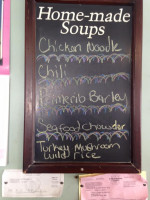 Home-made
Soups
Chicken Noodle
Chili
Primerib Barley
Seafood Chowder
Turkey Mushroom
Wild rice